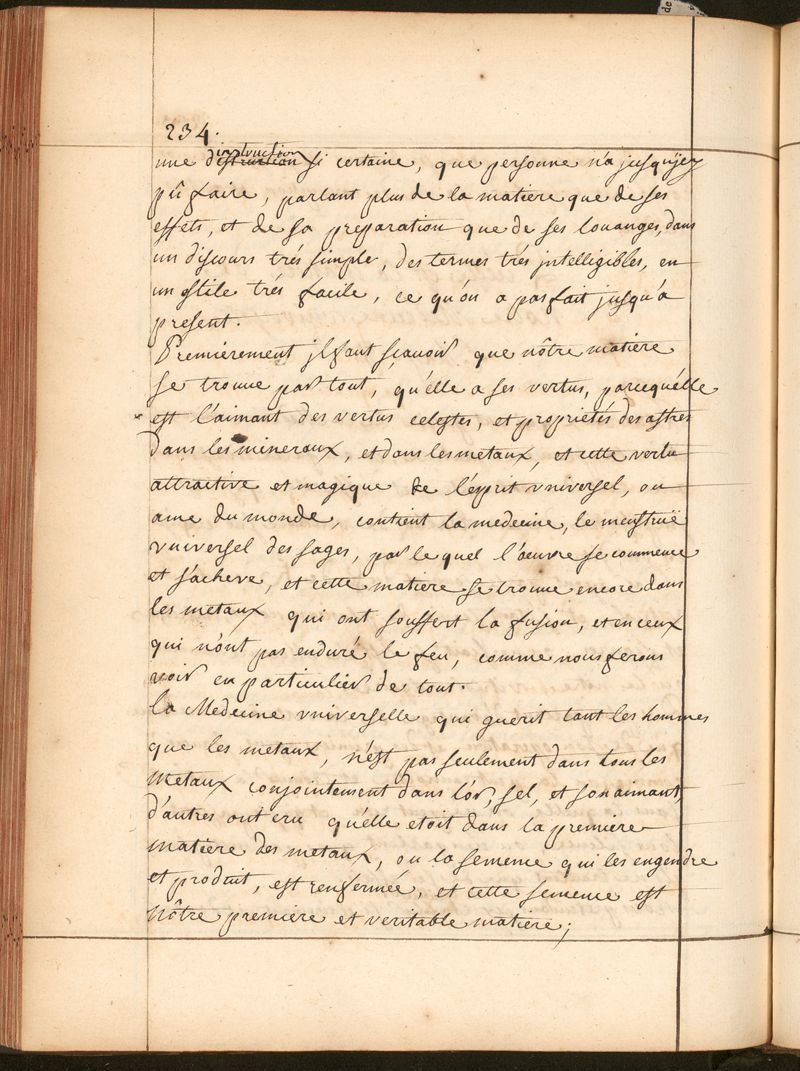 234.
instruction
une distruction si certaine, que personne n'a jusqu'jcy
pû faire, parlant plus de la matiere que de ses
effets, et de sa preparation que de ses louanges, dans
un discours trés simple, des termes trés jntelligibles, en
un stile trés facile, ce qu'on a pas fait jusqu'a
present.
Premiérement jl faut scavoir que nôtre matiére
se trouue par tout, qu'elle a ses vertus, parcequ'elle
est l'aimant des vertus celestes, et proprietés des astres
dans les mineraux, et dans les metaux, et cette vertu
attractive et magique de l'esprit vniversel, ou
ame du monde, contient la medecine, le menstruë
vniversel des sages, par le quel l'oeuvre se commence
et s'acheve, et cette matiere se trouue encore dans
les metaux qui ont souffert la fusion, et en ceux
qui n'ont pas enduré le feu, comme nous ferons
voir en particulier de tout.
La Medecine vniverselle qui guerit tant les hommes
que les metaux, n'est pas seulement dans tous les
metaux conjointement dans l'or, sel, et son aimant,
d'autres ont cru qu'elle etoit dans la premiere
matiere des metaux, ou la semence qui les engendre
et produit, est renfermée, et cette semence est
nôtre premiere et veritable matiere;